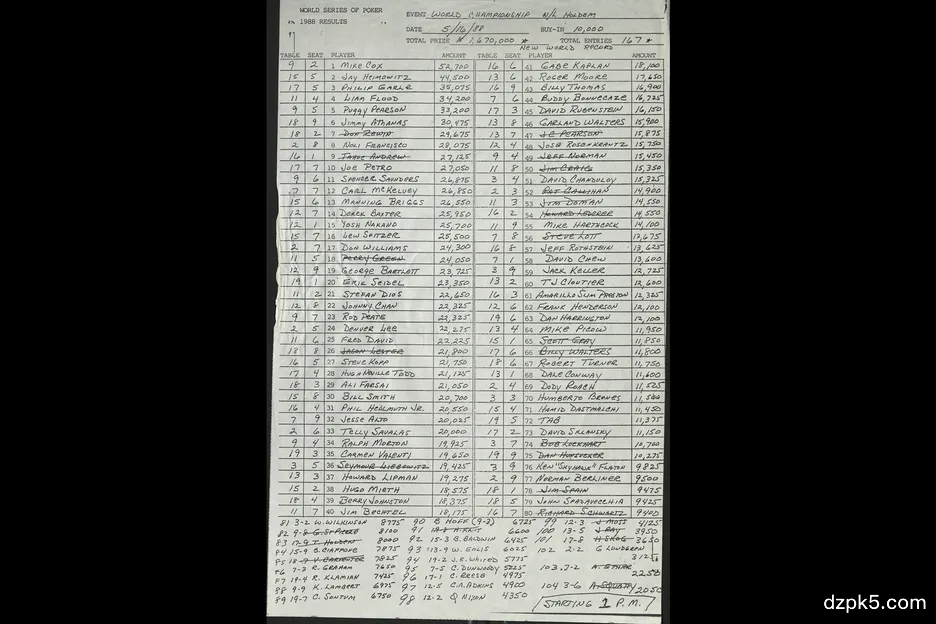 WORLD SERIES OF POKER
1988 RESULTS
EVENT WORLD CHAMPIONSHIP N/L HOLDEM
DATE 5/16/88 BUY-IN 10,000
TOTAL PRIZE $1,670,000 * TOTAL ENTRIES 167 *
NEW WORLD RECORD
TABLE SEAT PLAYER AMOUNT TABLE SEAT PLAYER AMOUNT
9 2 1 MIKE COX 52,700 16 6 41 GABE KAPLAN 18,100
15 5 2 JAY HEIMOWITZ 44,500 13 6 42 ROGER MOORE 17,650
17 5 3 PHILIP GARLE 35,075 16 9 43 BILLY THOMAS 16,900
11 4 4 LIAM FLOOD 34,200 7 6 44 BUDDY BONNECAZE 16,725
9 5 5 PUGGY PEARSON 33,200 17 3 45 DAVID RUBENSTEIN 16,150
18 9 6 JIMMY ATHANAS 30,475 13 8 46 GARLAND WALTERS 15,900
18 2 7 DON ZEWIN 29,675 13 7 47 J.C. PEARSON 15,875
2 8 8 NOLI FRANCISCO 28,075 12 4 48 JOSE ROSENKRANTZ 15,750
16 1 9 TAHOE ANDREW 27,125 9 4 49 JEFF NORMAN 15,450
17 7 10 JOE PETRO 27,050 11 8 50 JIM CRAIG 15,350
9 6 11 SPENCER SAUNDERS 26,875 3 4 51 DAVID CHANDULOY 15,325
7 7 12 CARL MCKELVEY 26,850 2 3 52 PAT CALLIHAN 14,900
15 6 13 MANNING BRIGGS 26,550 11 3 53 JIM DOMAN 14,550
12 7 14 DEREK BAXTER 25,950 16 2 54 HOWARD LEDERER 14,550
12 1 15 YOSH NAKANO 25,700 11 9 55 MIKE HARTHCOCK 14,100
15 7 16 LEW SPITZER 25,500 7 8 56 STEVE LOTT 13,675
2 7 17 DON WILLIAMS 24,300 16 8 57 JEFF ROTHSTEIN 13,625
11 5 18 PERRY GREEN 24,050 7 1 58 DAVID CHEW 13,600
12 9 19 GEORGE BARTLETT 23,725 3 9 59 JACK KELLER 12,725
19 1 20 ERIK SEIDEL 23,350 13 2 60 TJ CLOUTIER 12,600
11 2 21 STEFAN DIOS 22,650 16 3 61 AMARILLO SLIM PRESTON 12,325
12 8 22 JOHNNY CHAN 22,325 12 6 62 FRANK HENDERSON 12,100
9 7 23 ROD PEATE 22,325 19 6 63 DAN HARRINGTON 12,100
2 5 24 DENVER LEE 22,275 13 4 64 MIKE PICOW 11,950
11 6 25 FRED DAVID 22,225 15 1 65 SCOTT GRAY 11,850
18 8 26 JASON LESTER 21,800 17 6 66 BILLY WALTERS 11,800
16 5 27 STEVE KOPP 21,750 18 6 67 ROBERT TURNER 11,750
17 4 28 HUGH NEVILLE TODD 21,125 13 1 68 DALE CONWAY 11,600
18 3 29 ALI FARSAI 21,050 2 4 69 DODY ROACH 11,525
15 8 30 BILL SMITH 20,700 3 3 70 HUMBERTO BRENES 11,500
16 4 31 PHIL HELLMUTH JR. 20,550 15 4 71 HAMID DASTMALCHI 11,450
7 9 32 JESSE ALTO 20,025 19 5 72 TAB 11,375
2 6 33 TELLY SAVALAS 20,000 17 2 73 DAVID SKLANSKY 11,150
9 4 34 RALPH MORTON 19,925 3 7 74 BOB LOCKHART 10,700
19 3 35 CARMEN VALENTI 19,650 19 9 75 DAN HOFSECKER 10,275
3 5 36 SEYMOUR LIEBOWITZ 19,425 3 9 76 KEN "SKYHAWK" FLATON 9825
13 3 37 HOWARD LIPMAN 19,275 2 9 77 NORMAN BERLINER 9500
15 2 38 HUGO MIETH 18,575 18 1 78 JIM SPAIN 9475
18 4 39 BERRY JOHNSTON 18,375 18 5 79 JOHN SPADAVECCHIA 9425
11 7 40 JIM BECHTEL 18,175 16 7 80 RICHARD SCHWARTZ 9400
81 3-2 W. WILKINSON 8775 90 B HOFF (9-3) 6725 99 12-3 J MOSS 4125
82 9-8 G. ST PIERRE 8100 91 6600 100 13-5 3950
83 17-9 T. HOLDEN 8000 92 15-3 B. BALDWIN 6425 101 17-8 H SKOG 3650
84 15-9 B. CIAFFONE 7875 93 13-9 W. SOLIS 6025 102 2-2 G LUNDGREN
85 18-9 V. CARPENTER 7825 94 19-2 J.E. WHITED 5775 3125
86 7-3 R. GRAHAM 7650 95 7-5 C. DUNWOODY 5225 103 7-2 2250
87 19-4 R. KLAMIAN 7425 96 17-1 C. REESE 4975
88 9-9 K. LAMBERT 6975 97 12-5 C.A. ADKINS 4900 104 3-6 2050
89 19-7 C. SONTUM 6750 98 12-2 Q NIXON 4350
STARTING 1 P.M.
dzpk5.com